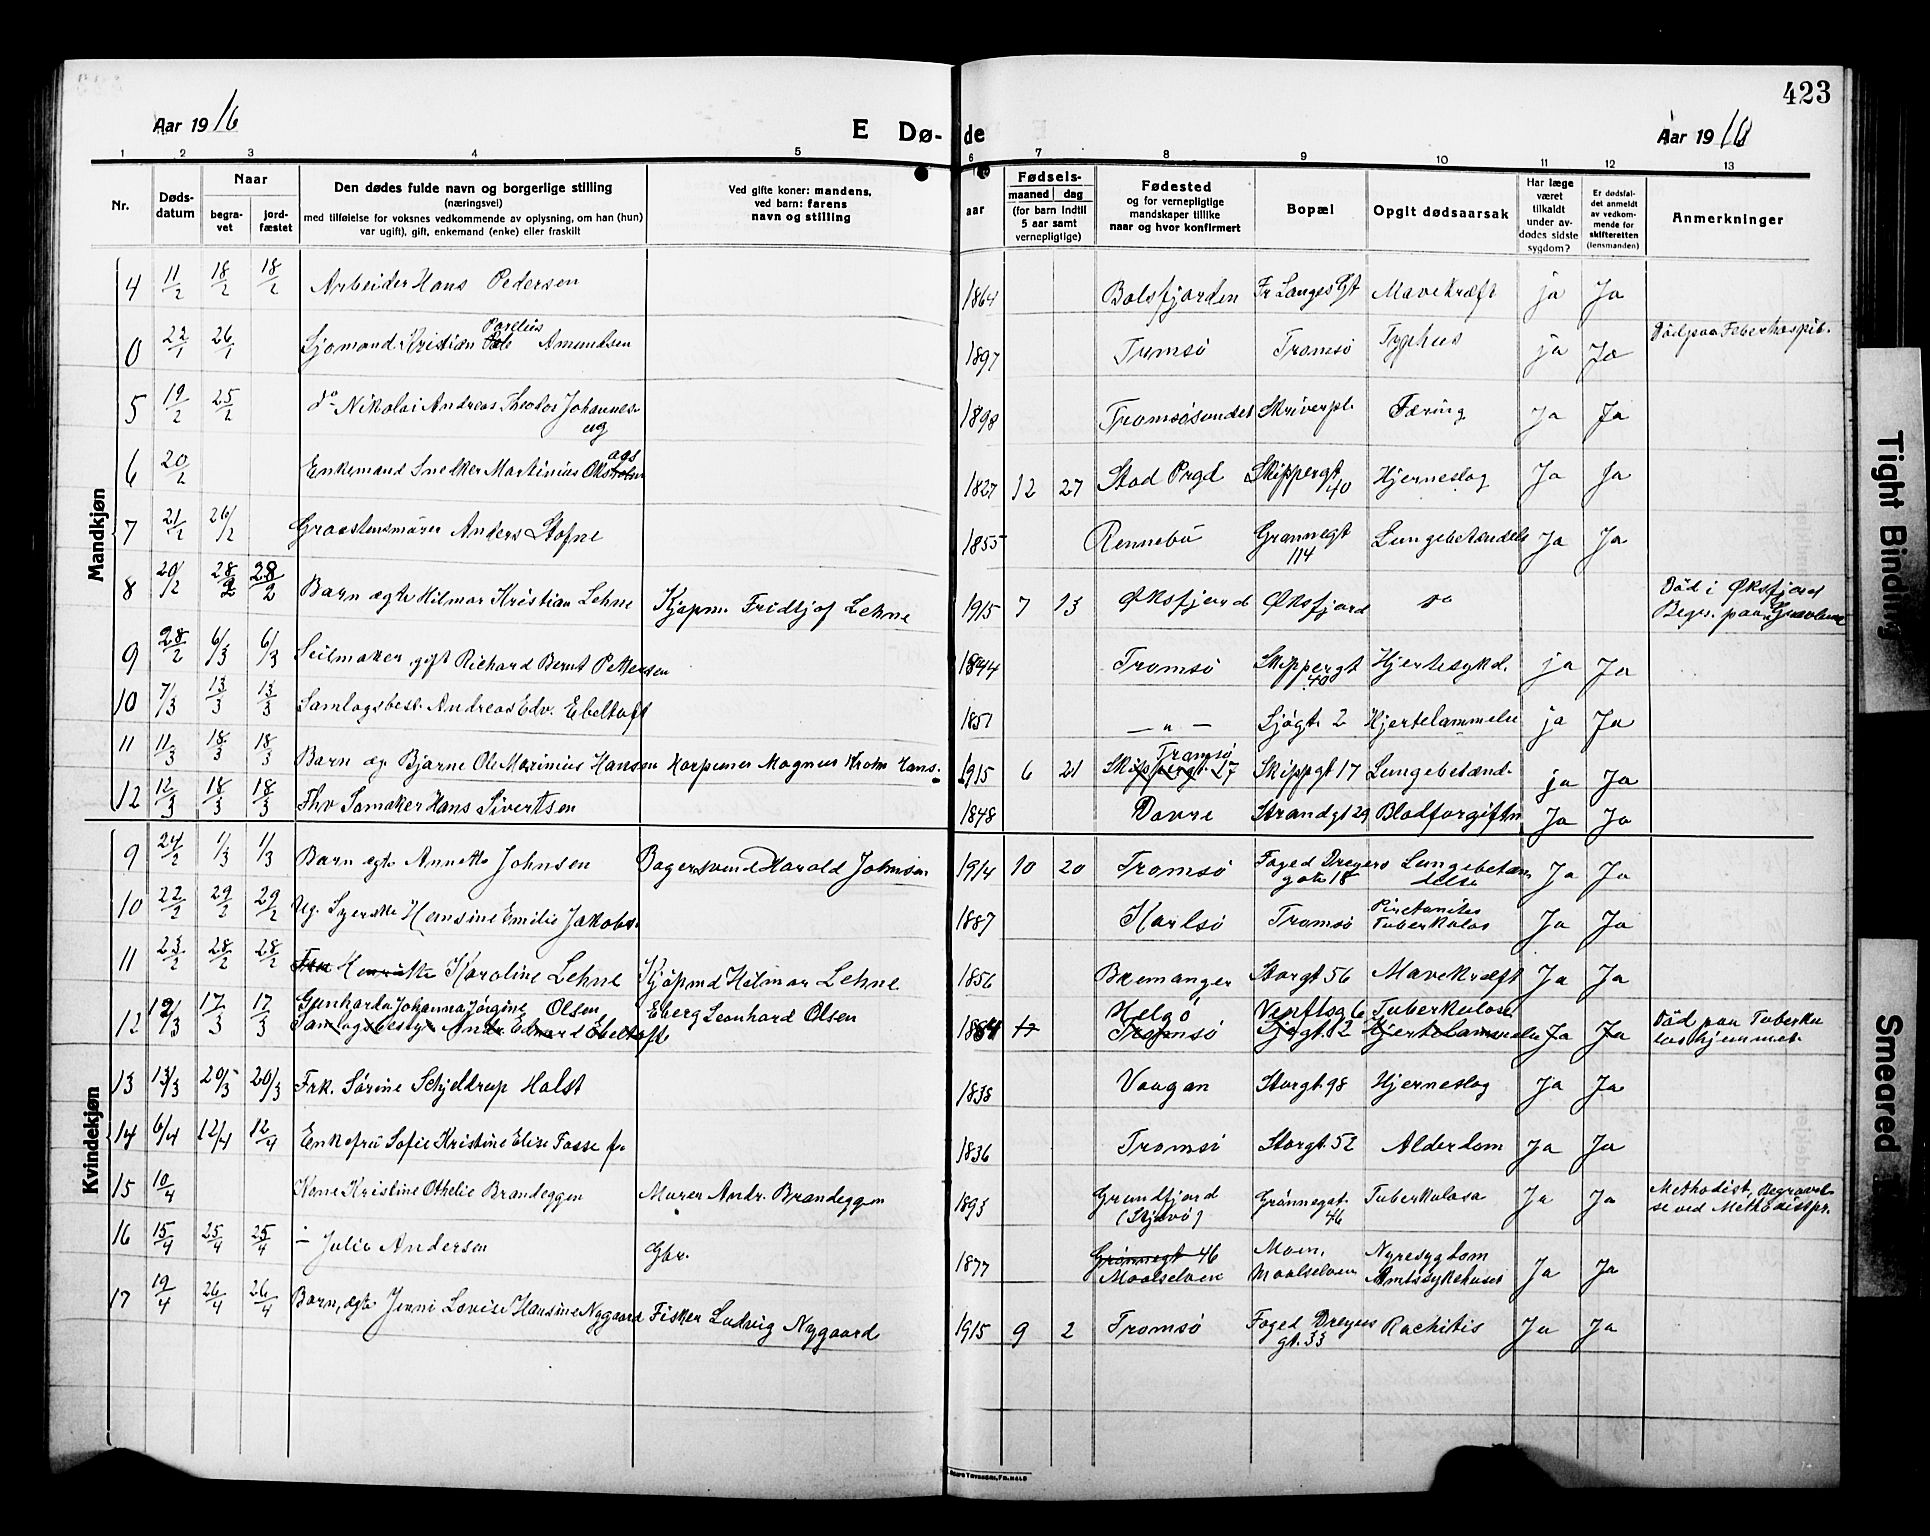 423
Aar 1916
E Dø-
de
Aar 1916
1 2 3 4 5 6 7 8 9 10 11 12 13
Nr.
Døds-
datum
Naar
begra-
vet
jord-
fæstet
Den dødes fulde navn og borgerlige stilling
(næringsvei)
med tilføielse for voksnes vedkommende av oplysning, om han (hun)
var ugift), gift, enkemand (enke) eller fraskilt
Ved gifte koner: mandens,
ved barn: farens
navn og stilling
aar
Fødsels-
maaned dag
(for barn indtil
5 aar samt
vernepligtige)
Fødested
og for vernepligtige
mandskaper tillike
naar og hvor konfirmert
Bopæl
Opgit dødsaarsak
Har læge
været
tilkaldt
under av-
dødes sidste
sygdom?
Er dødsfal-
det anmeldt
av vedkom-
mende for
skifteretten
(lensmanden)
Anmerkninger
Mandkjøn
4 11/2 18/2 18/2 Arbeider Hans Pedersen 1864 Balsfjorden Fr Langes Gt Mavekræft ja Ja
0 22/1 26/1 Sjømand Kristian Parelius Amundsen 1897 Tromsø Tromsø Typhus ja Ja Död paa Feberhospit.
5 19/2 25/2 do Nikolai Andreas Theodor Johannes- 1898 Tromsøsundet Skriverpl. Tæring Ja Ja
ug
6 20/2 Enkemand Snekker Martinius 1827 12 27 Stod Prgd Skippergt 40 Hjerneslag Ja Ja
7 21/2 26/2 Graastensmurer Anders Stofne 1855 Rennebu Grønnegt 114 Lungebetændels Ja Ja
8 20/2 28/2 28/2 Barn ægte Hilmar Kristian Lehne Kjøpm. Fridtjof Lehne 1915 7 13 Øksfjord Øksfjord do Död i Øksfjord
Begr. paa Gravlund
9 28/2 6/3 6/3 Seilmaker, gift Richard Bernt Pettersen 1844 Tromsø Skippergt 40 Hjertesykd. ja Ja
10 7/3 13/3 13/3 Samlagsbest. Andreas Edv. Ebeltoft 1851 — " — Sjøgt. 2 Hjertelammelse ja Ja
11 11/3 18/3 18/3 Barn æg. Bjarne Ole Marinius Hansen Harpuner Magnus Krohn Hans. 1915 6 21 Tromsø Skippergt. 27 Skippgt 17 Lungebetænd. ja Ja
12 12/3 18/3 18/3 Fhv Samaker Hans Sivertsen 1848 Dovre Strandgt 29 Blodforgiftn. Ja Ja
Kvindekjøn
9 24/2 1/3 1/3 Barn ægte Annette Johnsen Bagersvend Harald Johnsen 1914 10 20 Tromsø Foged Dreyers gate 18 Lungebetæn delse Ja Ja
10 22/2 29/2 29/2 Ug. Syerske Hansine Emilie Jakobs. 1887 Karlsø Tromsø Tuberkulos Ja Ja
11 23/2 28/2 28/2 Frk Henriette Karoline Lehne Kjøpmd Hilmar Lehne 1856 Bremanger Storgt. 56 Mavekræft Ja Ja
12 12/3 17/3 17/3 Gunharda Johanna Jørgine Olsen Eberg Leonhard Olsen 1884 17 Helgö Tuberkulose Ja Ja Död paa Tuberku
Samlagsbesty. Andr. Edvard Ebeltoft Tromsø Sjøgt. 2 Hjertelammelse loshjemmet.
13 13/3 20/3 20/3 Frk. Sørine Schjeldrup Holst 1838 Vaagan Storgt. 98 Hjerneslag Ja Ja
14 6/4 12/4 12/4 Enkefru Sofie Kristine Elise Fosse f. 1836 Tromsø Storgt. 52 Alderdom Ja Ja
15 10/4 Kone Kristine Othelie Brandeggen Murer Andr. Brandeggen 1893 Grundfjord (Skjervø) Grønnegat. 46 Tuberkulosa Ja Ja Methodist, Begravel-
se ved Methodistpr.
16 15/4 25/4 25/4 — Julie Andersen Gbr. 1877 Grønnegt 46 Maalselven Moen, Maalselven Nyresygdom Amtssykehuset Ja Ja
17 19/4 26/4 26/4 Barn, ægte Jenni Lovise Hansine Nygaard Fisker Ludvig Nygaard 1915 9 2 Tromsø Foged Dreyers gt. 33 Rachitis Ja Ja
Tight Binding
Smeared